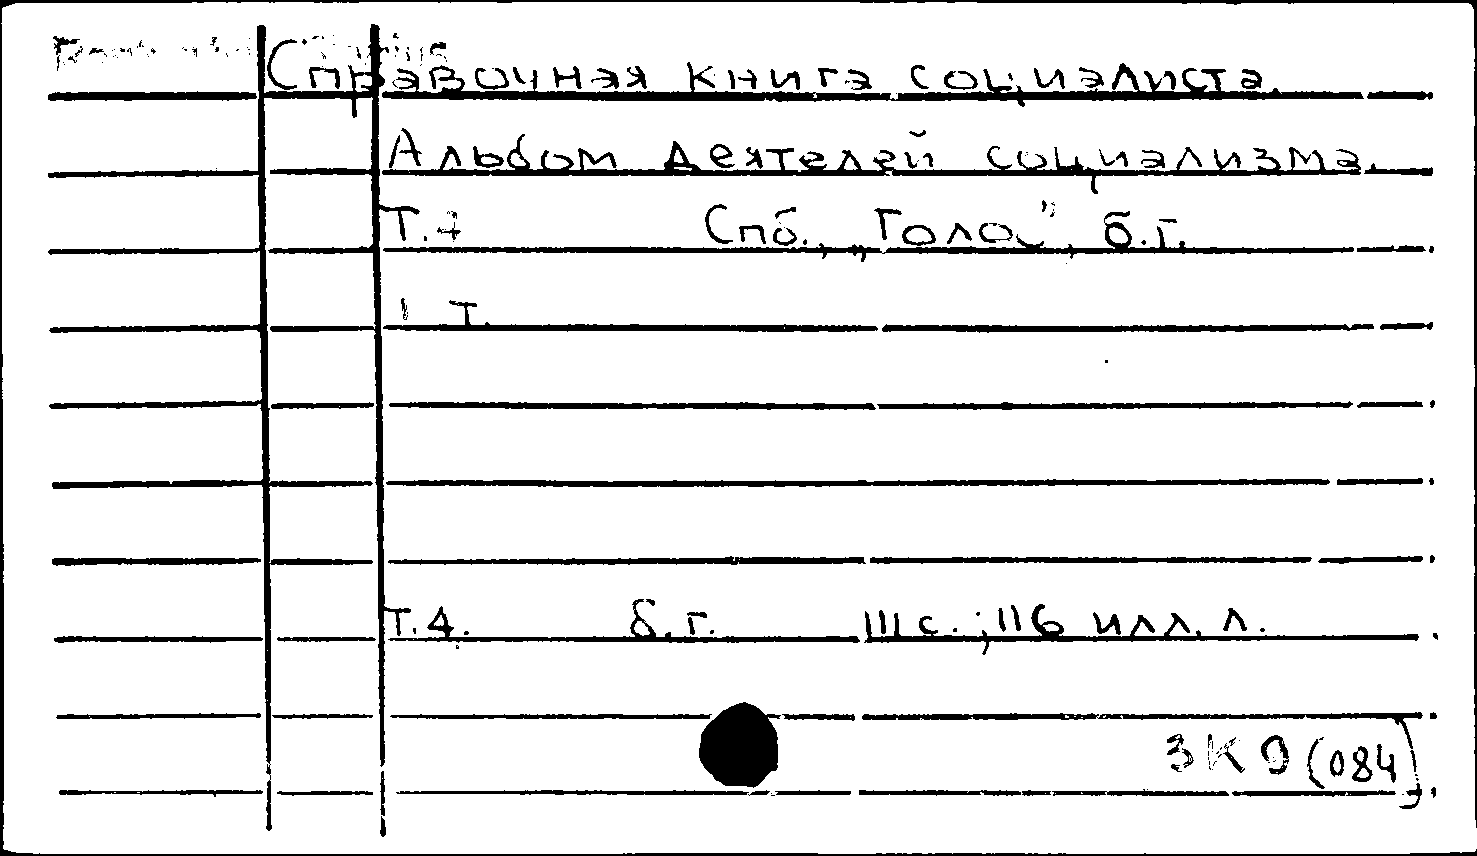 Справочная книга социалиста.
Альбом деятелей социализма.
Т.4 Спб., „Голос", б.г.
1 т.
Т.4. б.г. III с.; 116 илл. л.
3К9(084)